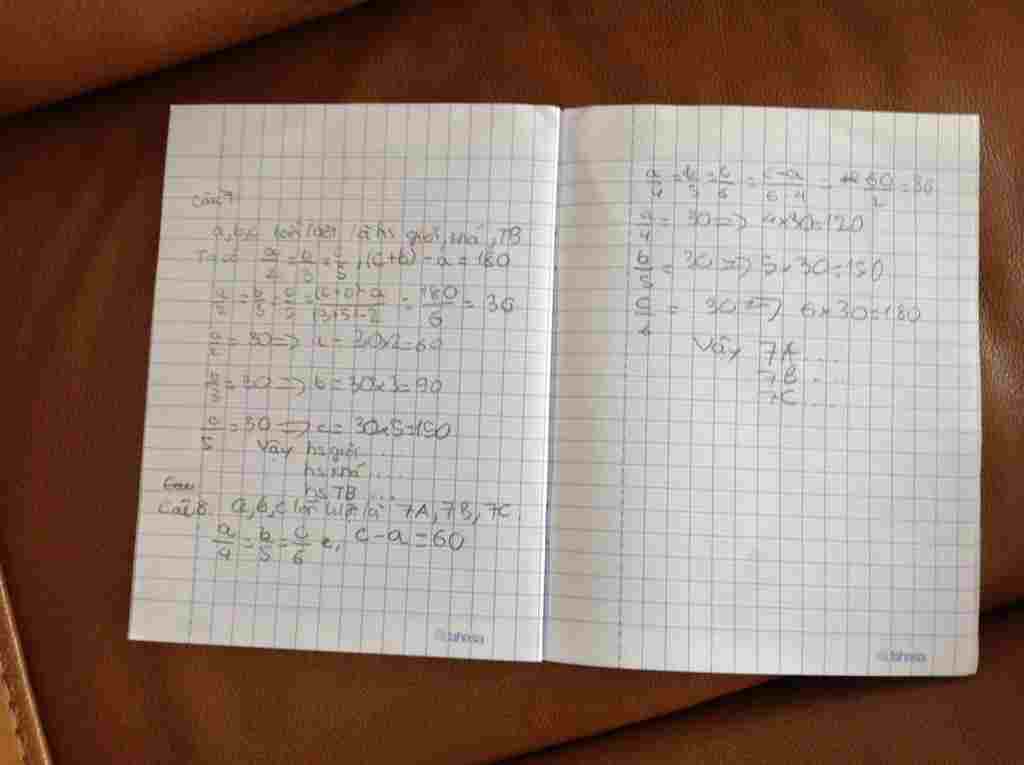 Câu 7
a, b, c lần lượt là hs giỏi, khá, TB
Ta có a/2 = b/3 = c/5, (c+b) - a = 180
a/2 = b/3 = c/5 = (c+b)-a / (3+5)-2 = 180/6 = 30
a/2 = 30 => a = 30x2 = 60
b/3 = 30 => b = 30x3 = 90
c/5 = 30 => c = 30x5 = 150
Vậy hs giỏi ...
hs khá ...
hs TB ...
Câu 8. a, b, c lần lượt là 7A, 7B, 7C.
a/4 = b/5 = c/6, c-a = 60
Jahasa
a/4 = b/5 = c/6 = c-a / 6-4 = 60/2 = 30
a/4 = 30 => 4x30 = 120
b/5 = 30 => 5x30 = 150
c/6 = 30 => 6x30 = 180
Vậy 7A ...
7B ...
7C ...
Jahasa